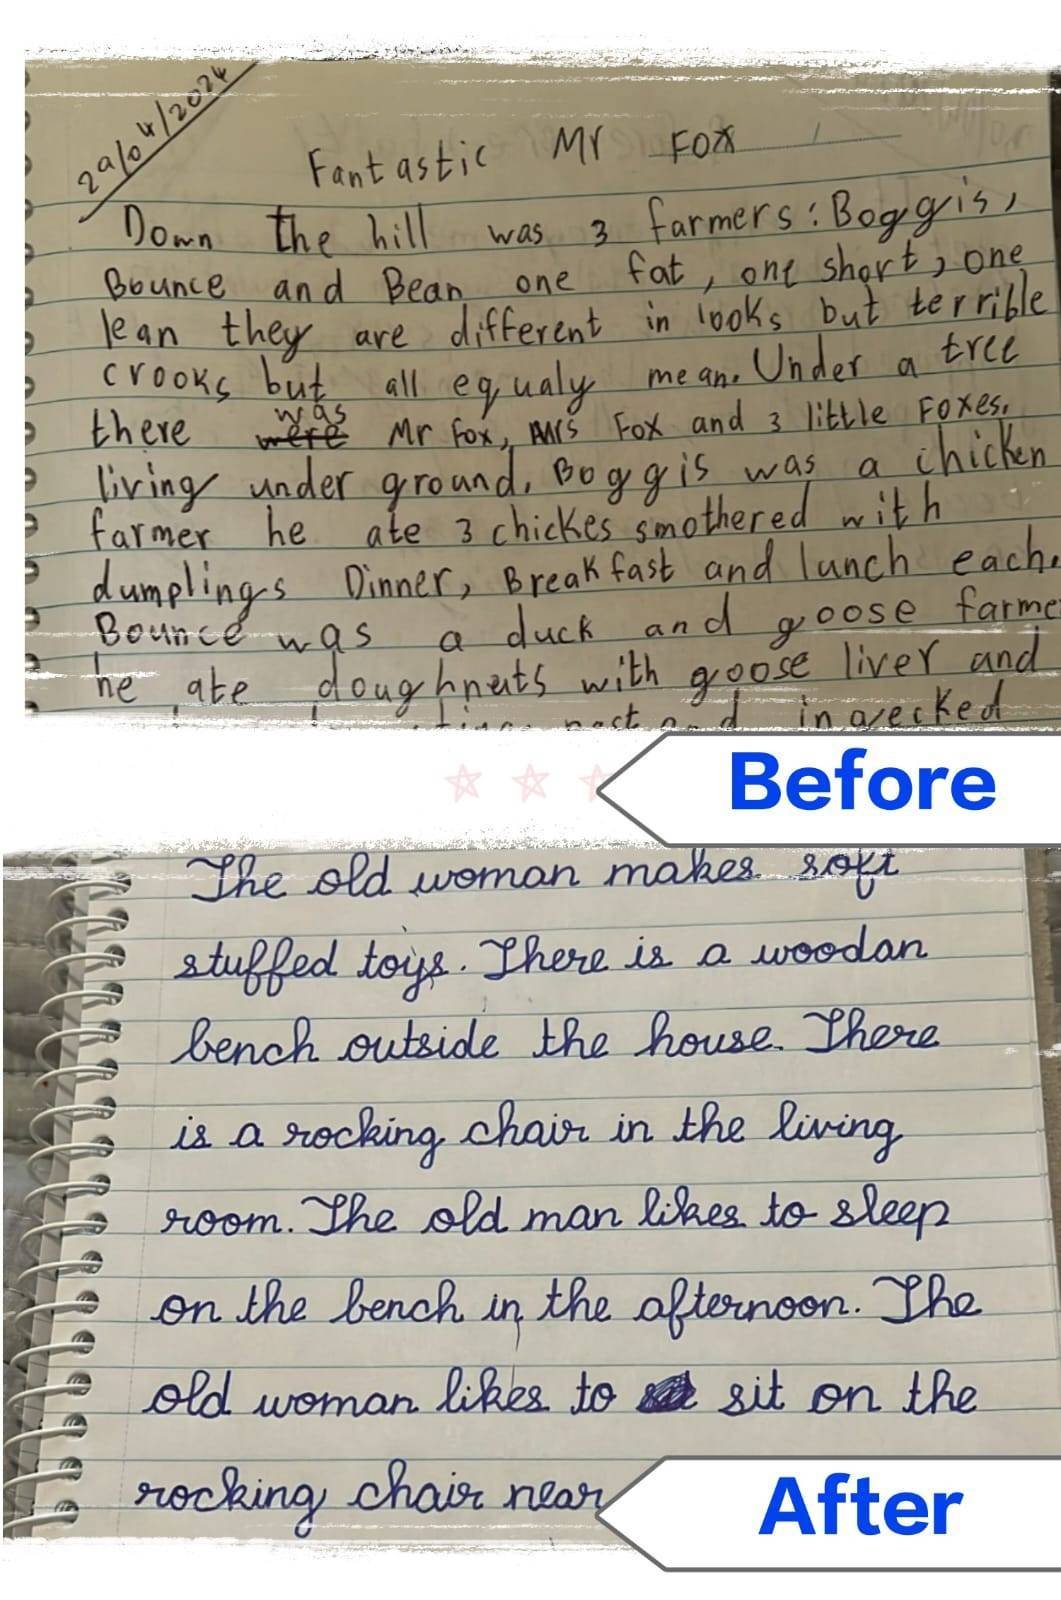 29/04/2024
Fantastic Mr Fox
Down the hill was 3 farmers: Boggis,
Bounce and Bean one fat, one short, one
lean they are different in looks but terrible
crooks but all equaly mean. Under a tree
was
there were Mr Fox, Mrs Fox and 3 little Foxes.
living under ground. Boggis was a chicken
farmer he ate 3 chickes smothered with
dumplings Dinner, Breakfast and lunch each.
Bounce was a duck and goose farme
he ate doughnuts with goose liver and
in
Before
The old woman makes soft
stuffed toys. There is a woodan
bench outside the house. There
is a rocking chair in the living
room. The old man likes to sleep
on the bench in the afternoon. The
old woman likes to sit on the
rocking chair near
After